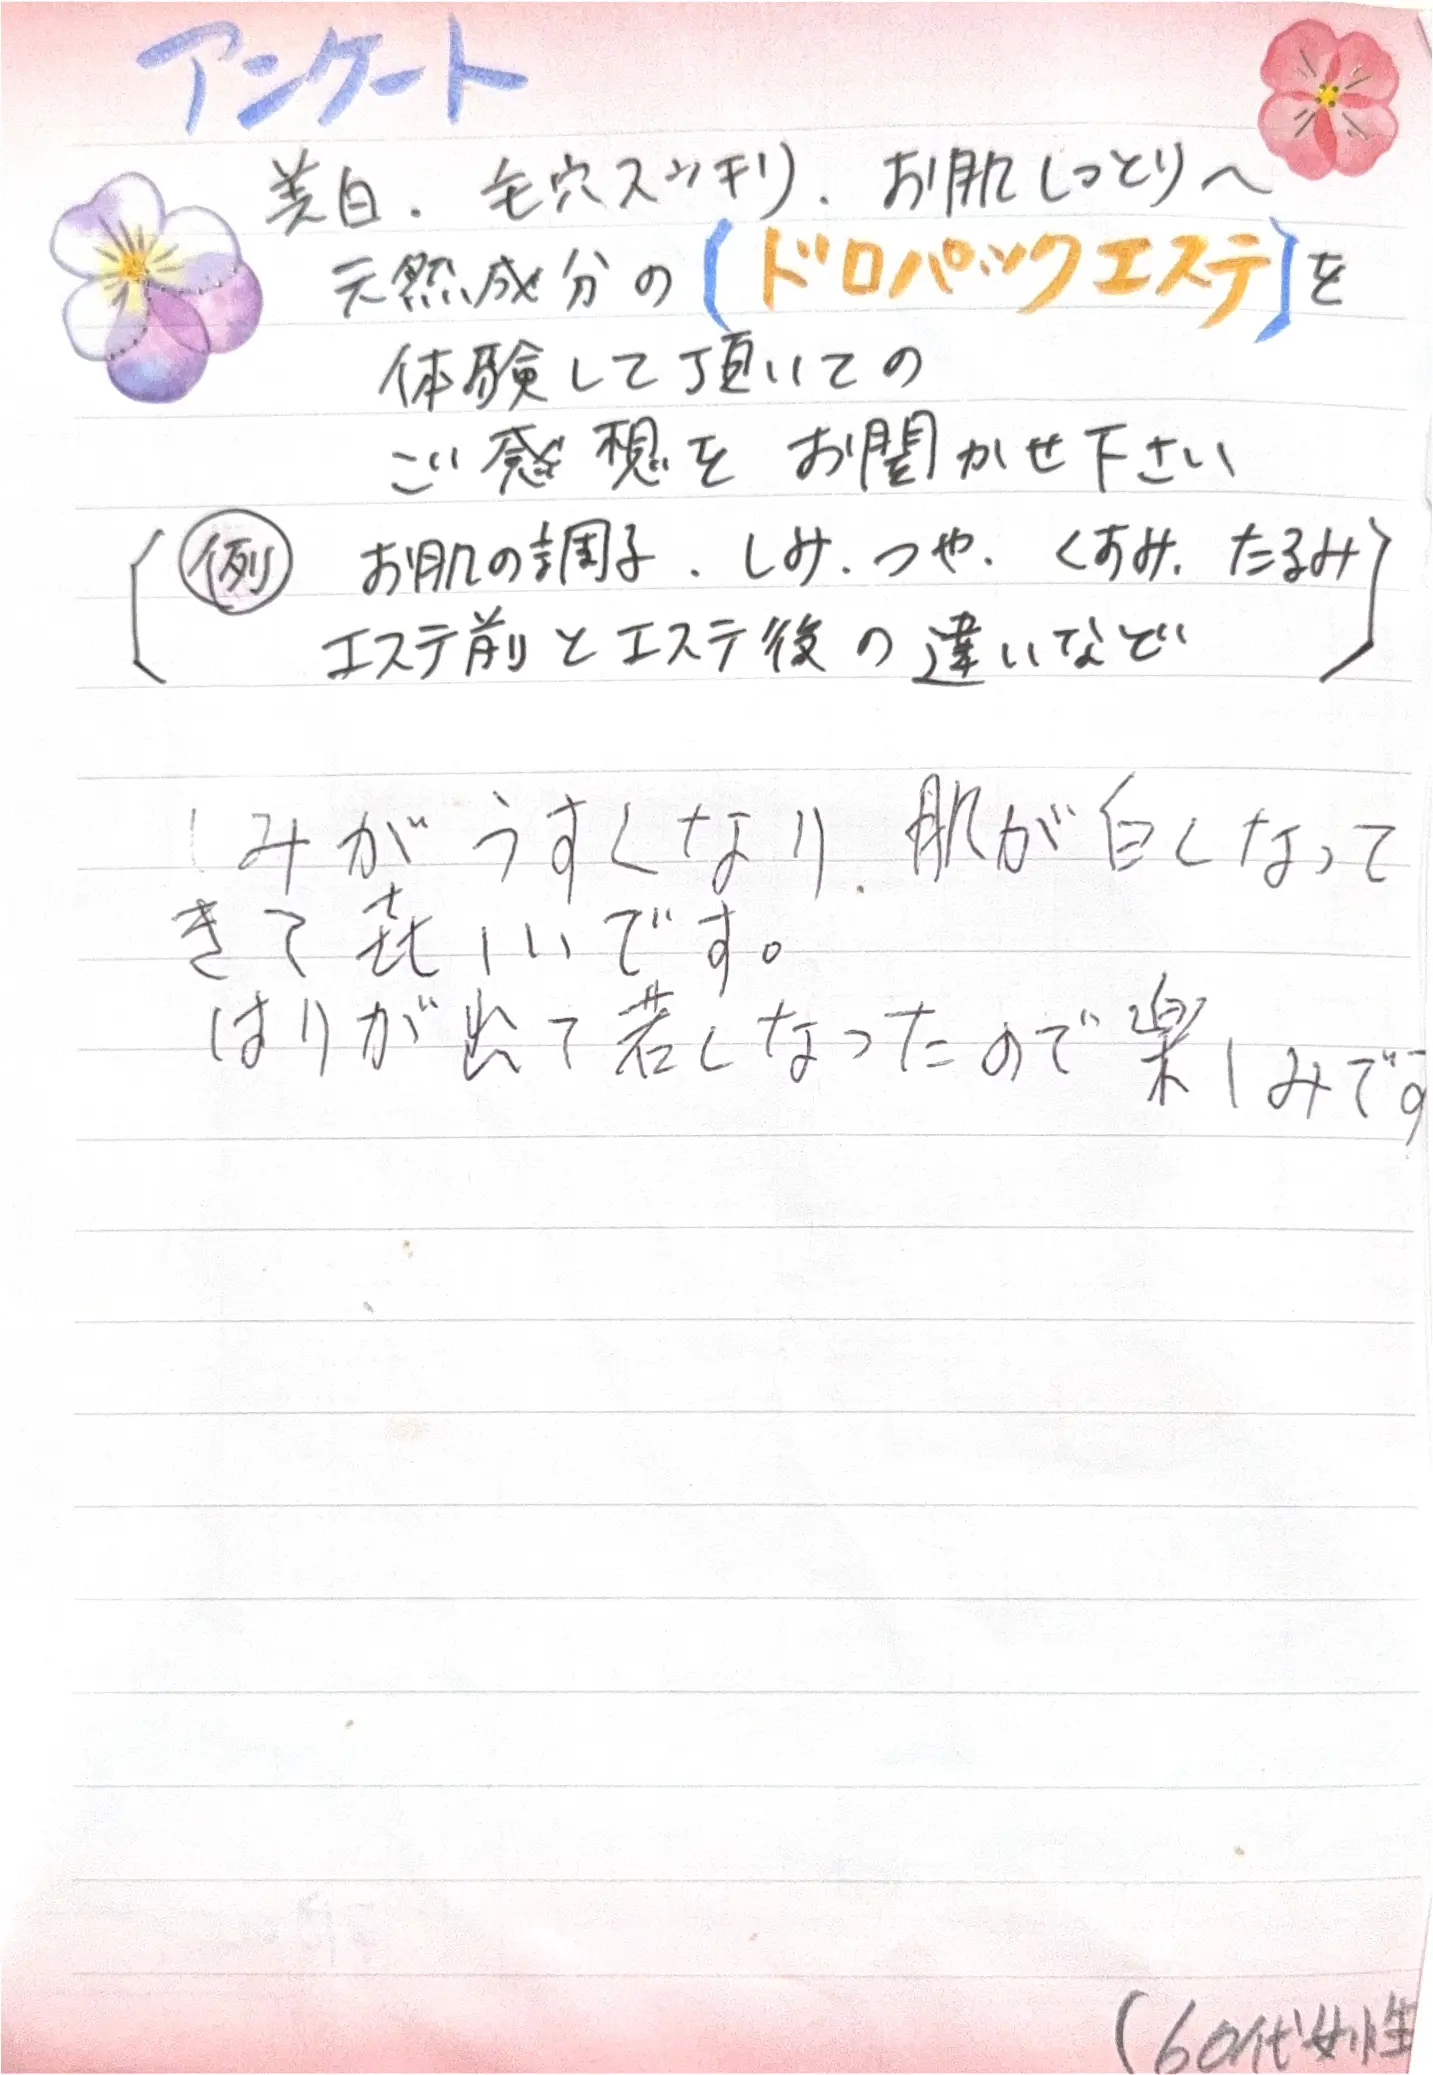 アンケート
美白．毛穴スッキリ．お肌しっとりへ
天然成分の〔ドロパックエステ〕を
体験して頂いての
ご感想をお聞かせ下さい
例 お肌の調子．しみ．つや．くすみ．たるみ
エステ前とエステ後の違いなど
しみがうすくなり．肌が白くなって
きて㐂しいです。
はりが出て若くなったので楽しみです
(60代女性